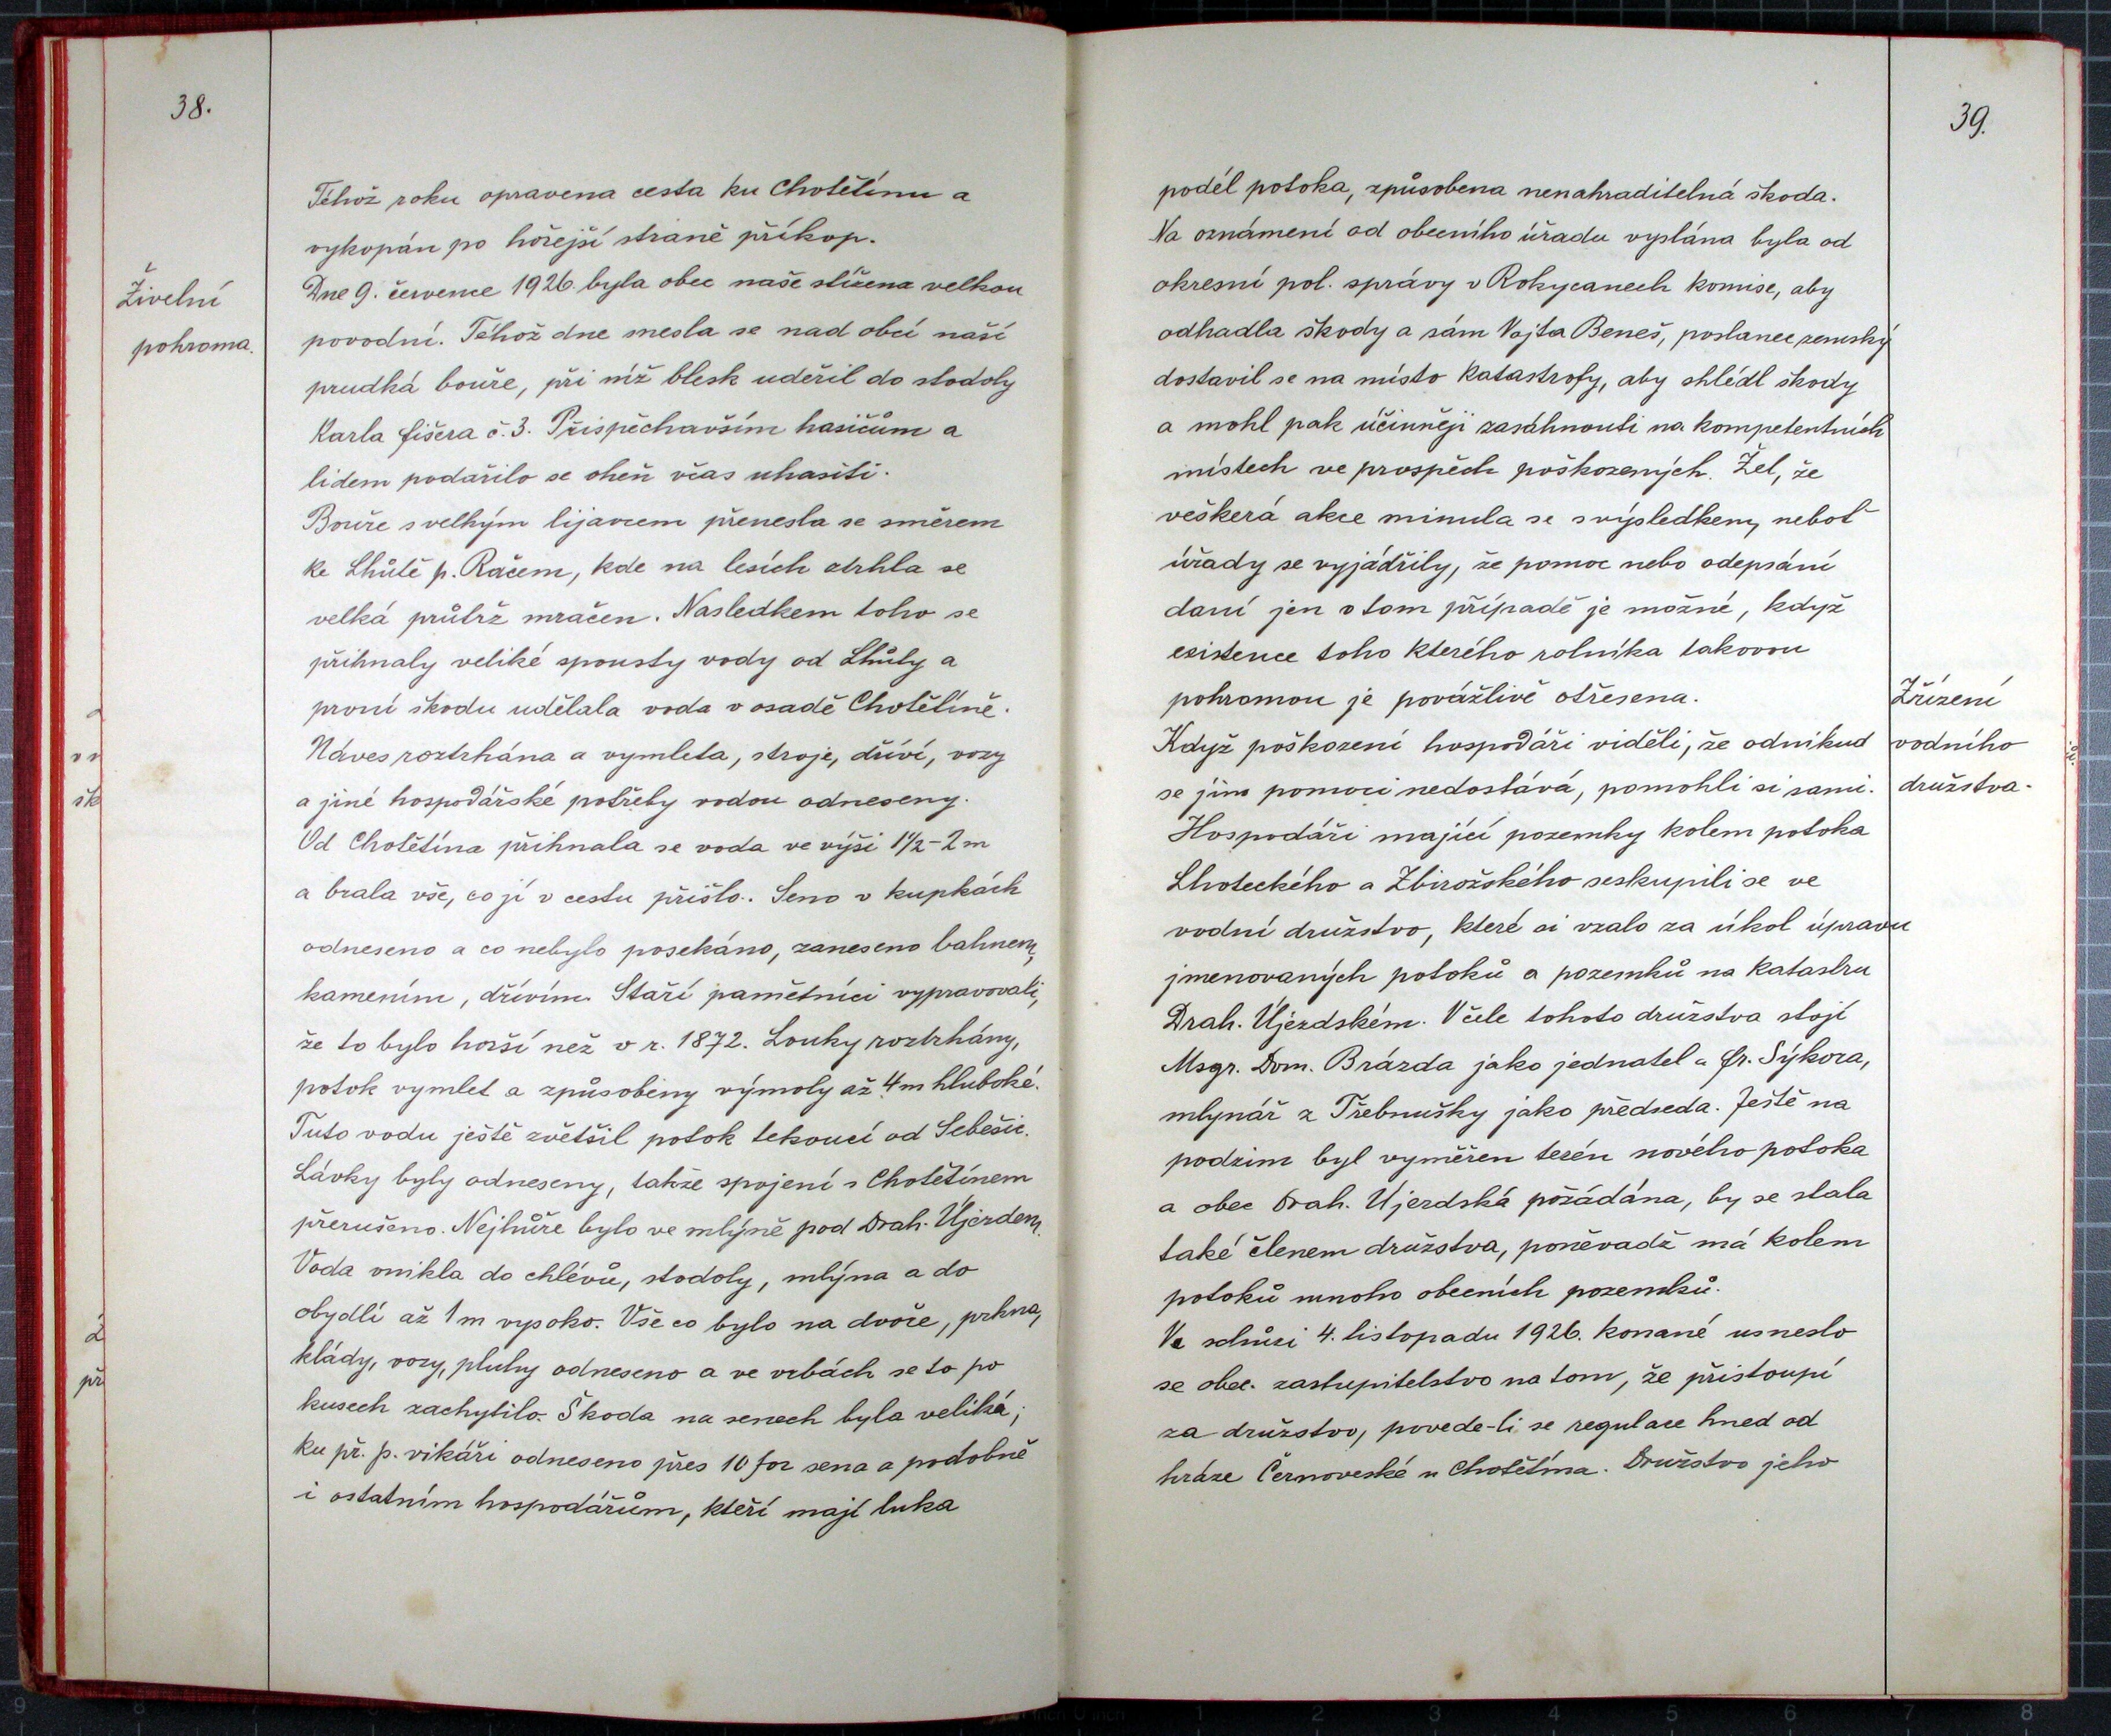 38.
Živelní
pohroma.
Téhož roku opravena cesta ku Chotětínu a
vykopán po hořejší straně příkop.
Dne 9. července 1926 byla obec naše stížena velkou
povodní. Téhož dne snesla se nad obcí naší
prudká bouře, při níž blesk udeřil do stodoly
Karla Fišera č. 3. Přispěchavším hasičům a
lidem podařilo se oheň včas uhasiti.
Bouře s velkým lijavcem přenesla se směrem
ke Lhůtě p. Račem, kde na lesích strhla se
velká průtrž mračen. Nasledkem toho se
přihnaly veliké spousty vody od Lhůty a
první škodu udělala voda v osadě Chotětíně.
Náves roztrhána a vymleta, stroje, dříví, vozy
a jiné hospodářské potřeby vodou odneseny.
Od Chotětína přihnala se voda ve výši 1 1/2 - 2 m
a brala vše, co jí v cestu přišlo. Seno v kupkách
odneseno a co nebylo posekáno, zaneseno bahnem,
kamením, dřívím. Staří pamětníci vypravovali,
že to bylo horší než v r. 1872. Louky roztrhány,
potok vymlet a způsobeny výmoly až 4 m hluboké.
Tuto vodu ještě zvětšil potok tekoucí od Sebešic.
Lávky byly odneseny, takže spojení s Chotětínem
přerušeno. Nejhůře bylo ve mlýně pod Drah. Újezdem.
Voda vnikla do chlévů, stodoly, mlýna a do
obydlí až 1 m vysoko. Vše co bylo na dvoře, prkna,
klády, vozy, pluhy odneseno a ve vrbách se to po
kusech zachytilo. Škoda na senech byla veliká;
ku př. p. vikáři odneseno přes 10 for sena a podobně
i ostatním hospodářům, kteří mají luka
39.
podél potoka, způsobena nenahraditelná škoda.
Na oznámení od obecního úřadu vyslána byla od
okresní pol. správy v Rokycanech komise, aby
odhadla škody a sám Vojta Beneš, poslanec zemský
dostavil se na místo katastrofy, aby shlédl škody
a mohl pak účinněji zasáhnouti na kompetentních
místech ve prospěch poškozených. Žel, že
veškerá akce minula se s výsledkem, neboť
úřady se vyjádřily, že pomoc nebo odepsání
daní jen v tom případě je možné, když
existence toho kterého rolníka takovou
pohromou je povážlivě otřesena.
Zřízení
vodního
družstva.
Když poškození hospodáři viděli, že odnikud
se jim pomoci nedostává, pomohli si sami.
Hospodáři mající pozemky kolem potoka
Lhoteckého a Zbirožského seskupili se ve
vodní družstvo, které si vzalo za úkol úpravu
jmenovaných potoků a pozemků na katastru
Drah. Újezdském. V čele tohoto družstva stojí
Msgr. Dom. Brázda jako jednatel a Fr. Sýkora,
mlynář z Třebnušky jako předseda. Ještě na
podzim byl vyměřen terén nového potoka
a obec Drah. Újezdská požádána, by se stala
také členem družstva, poněvadž má kolem
potoků mnoho obecních pozemků.
Ve schůzi 4. listopadu 1926. konané usneslo
se obec. zastupitelstvo na tom, že přistoupí
za družstvo, povede-li se regulace hned od
hráze Černoveské u Chotětína. Družstvo jeho